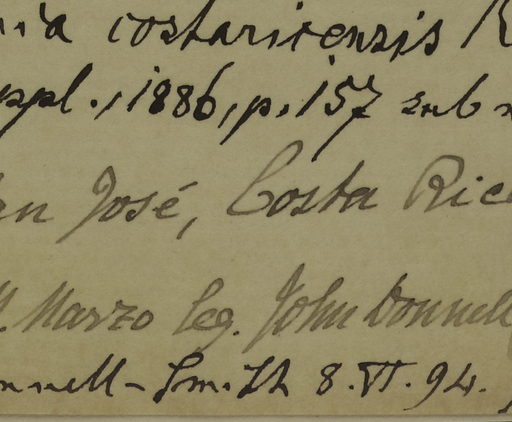 costaricensis
ppl., 1886, p. 157 sub
an José, Costa Rica
Marzo leg. John Donnell
nnell-Smith 8.VI.94.